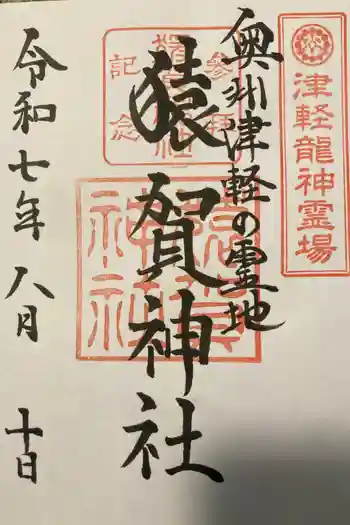 津軽龍神霊場
奥州津軽の霊地
参拝
記念
猿賀神社
猿賀
神社
令和七年八月十日